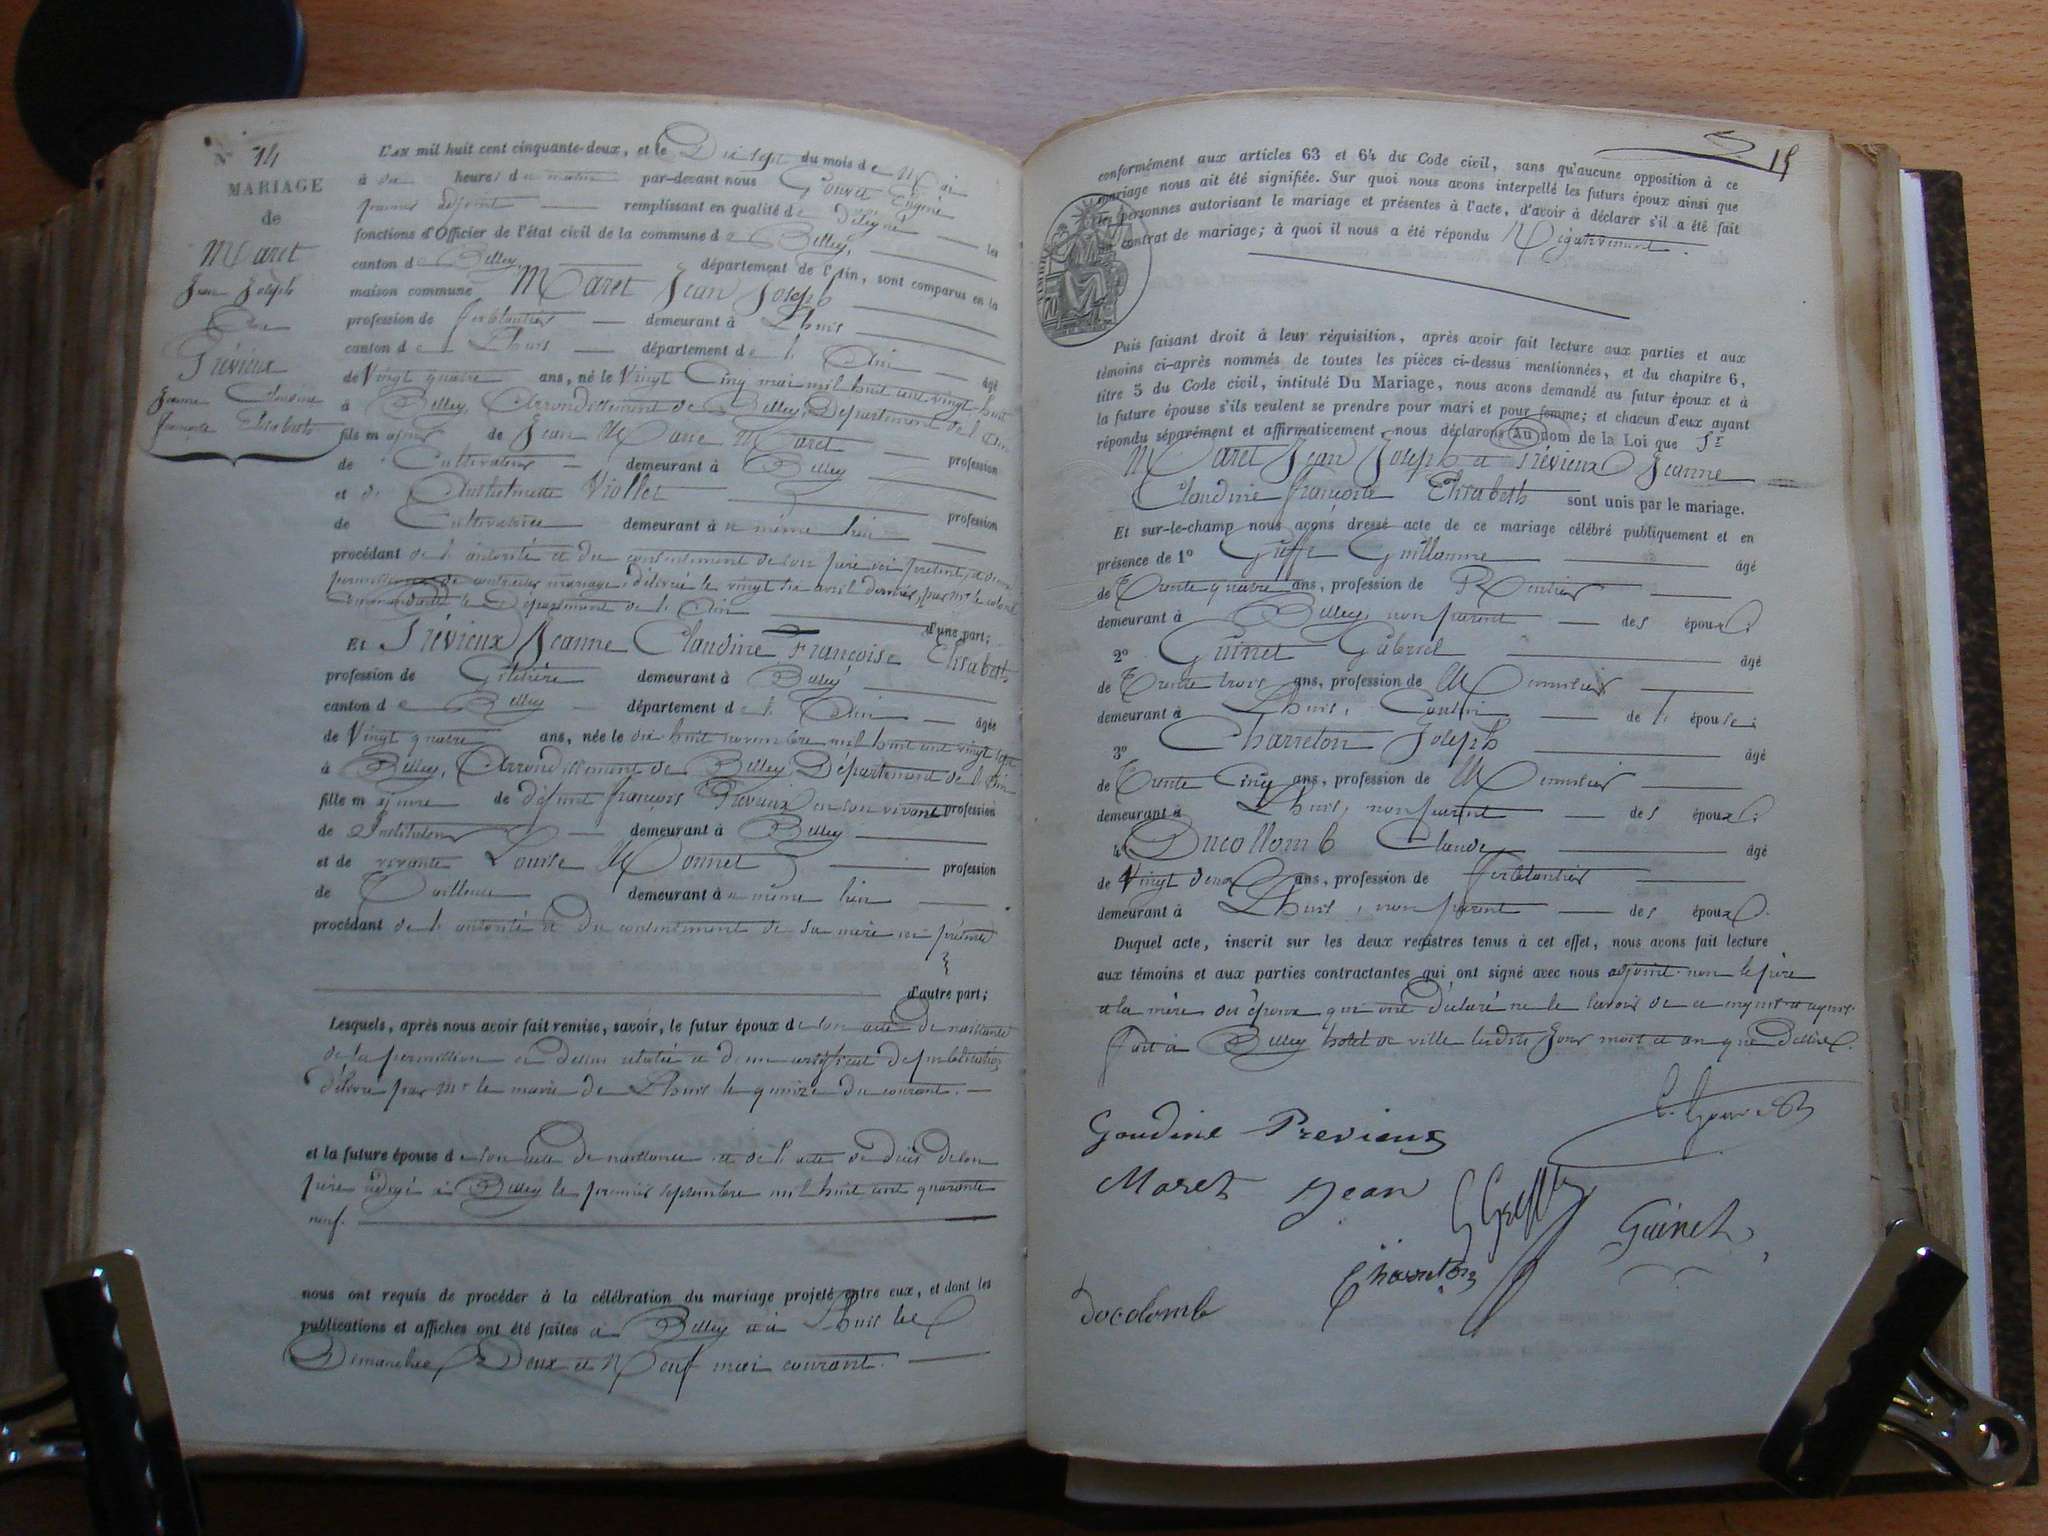 N° 14
MARIAGE
de
Maret
Jean Joseph
Et
Prévieux
Jeanne Claudine
Françoise Elisabeth
L'AN mil huit cent cinquante-deux, et le Dix sept du mois de Mai
à dix heures du matin par-devant nous Gouvet Eugène
premier adjoint remplissant en qualité de Délégué les
fonctions d'Officier de l'état civil de la commune de Belley,
canton de Belley, département de l'Ain, sont comparus en la
maison commune Maret Jean Joseph
profession de ferblantier demeurant à Lhuis
canton de Lhuis département de l'Ain âgé
de Vingt quatre ans, né le Vingt Cinq mai mil huit cent vingt huit
à Belley, Arrondissement de Belley, Département de l'Ain
fils majeur de Jean Marie Maret profession
de Cultivateur demeurant à Belley
et de Anthelmette Viollet profession
de Cultivatrice demeurant au même lieu
procédant de l'autorité et du consentement de son père ici présent, et d'une
permission de contracter mariage, délivrée le vingt six avril dernier, par Mr le colonel
Commandant le Département de l'Ain d'une part;
Et Prévieux Jeanne Claudine Françoise Elisabeth
profession de Giletière demeurant à Belley
canton de Belley département de l'Ain âgée
de Vingt quatre ans, née le dix huit novembre mil huit cent vingt sept
à Belley, Arrondissement de Belley, Département de l'Ain
fille majeure de défunt françois Prévieux en son vivant profession
de Instituteur demeurant à Belley
et de vivante Louise Monnet profession
de Tailleuse demeurant au même lieu
procédant de l'autorité et du consentement de sa mère ici présente
d'autre part;
Lesquels, après nous avoir fait remise, savoir, le futur époux de son acte de naissance
de la permission ci dessus relatée et d'un certificat de publication
délivré par Mr le maire de Lhuis le quinze du courant.
et la future épouse de son acte de naissance et de l'acte de décès de son
père rédigé à Belley le premier septembre mil huit cent quarante
neuf.
nous ont requis de procéder à la célébration du mariage projeté entre eux, et dont les
publications et affiches ont été faites à Belley et à Lhuis les
Dimanches Deux et Neuf mai courant.
15
conformément aux articles 63 et 64 du Code civil, sans qu'aucune opposition à ce
mariage nous ait été signifiée. Sur quoi nous avons interpellé les futurs époux ainsi que
les personnes autorisant le mariage et présentes à l'acte, d'avoir à déclarer s'il a été fait
un contrat de mariage; à quoi il nous a été répondu Négativement.
Puis faisant droit à leur réquisition, après avoir fait lecture aux parties et aux
témoins ci-après nommés de toutes les pièces ci-dessus mentionnées, et du chapitre 6,
titre 5 du Code civil, intitulé Du Mariage, nous avons demandé au futur époux et à
la future épouse s'ils veulent se prendre pour mari et pour femme; et chacun d'eux ayant
répondu séparément et affirmativement, nous déclarons Au nom de la Loi que Sr
Maret Jean Joseph et Prévieux Jeanne
Claudine françoise Elisabeth sont unis par le mariage.
Et sur-le-champ nous avons dressé acte de ce mariage célébré publiquement et en
présence de 1° Guillaume âgé
de Trente quatre ans, profession de Rentier
demeurant à Belley, non parent des époux;
2° Guinet Gabriel âgé
de Trente trois ans, profession de Menuisier
demeurant à Lhuis, Cousin de l'épouse;
3° Charreton Joseph âgé
de Trente Cinq ans, profession de Menuisier
demeurant à Lhuis, non parent des époux;
4° Ducollomb Claude âgé
de Vingt deux ans, profession de ferblantier
demeurant à Lhuis, non parent des époux.
Duquel acte, inscrit sur les deux registres tenus à cet effet, nous avons fait lecture
aux témoins et aux parties contractantes qui ont signé avec nous adjoint non le père
et la mère des époux qui ont déclaré ne le savoir de ce enquis et requis.
fait à Belley hotel de ville lesdits Jour mois et an que dessus.
Goudine Previeux
Maret Jean
Guinet
Charreton
Docolomb